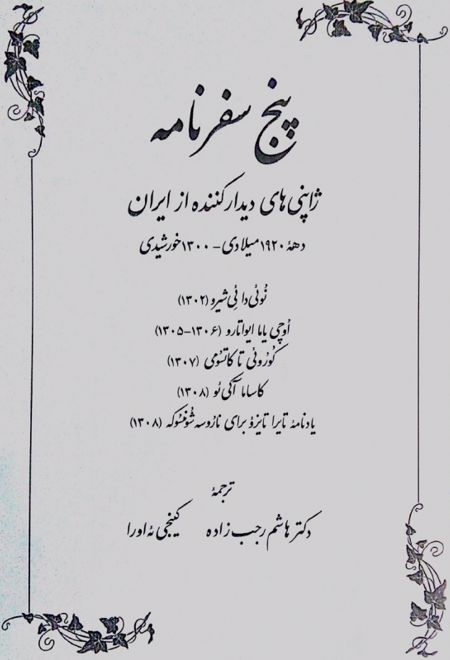 پنج سفرنامه
ژاپنی‌های دیدارکننده از ایران
دههٔ ۱۹۲۰ میلادی - ۱۳۰۰ خورشیدی
نُوئی دائی شیرو (۱۳۰۲)
اُوچی یاما ایواتارو (۱۳۰۶-۱۳۰۵)
کُوزوئی تا کاتسُومی (۱۳۰۷)
کاساما آکی ئو (۱۳۰۸)
یادنامهٔ تایرا تایزۀ برای ناروسه شُونسُوکه (۱۳۰۸)
ترجمهٔ
دکتر هاشم رجب زاده کینجی ئه اورا